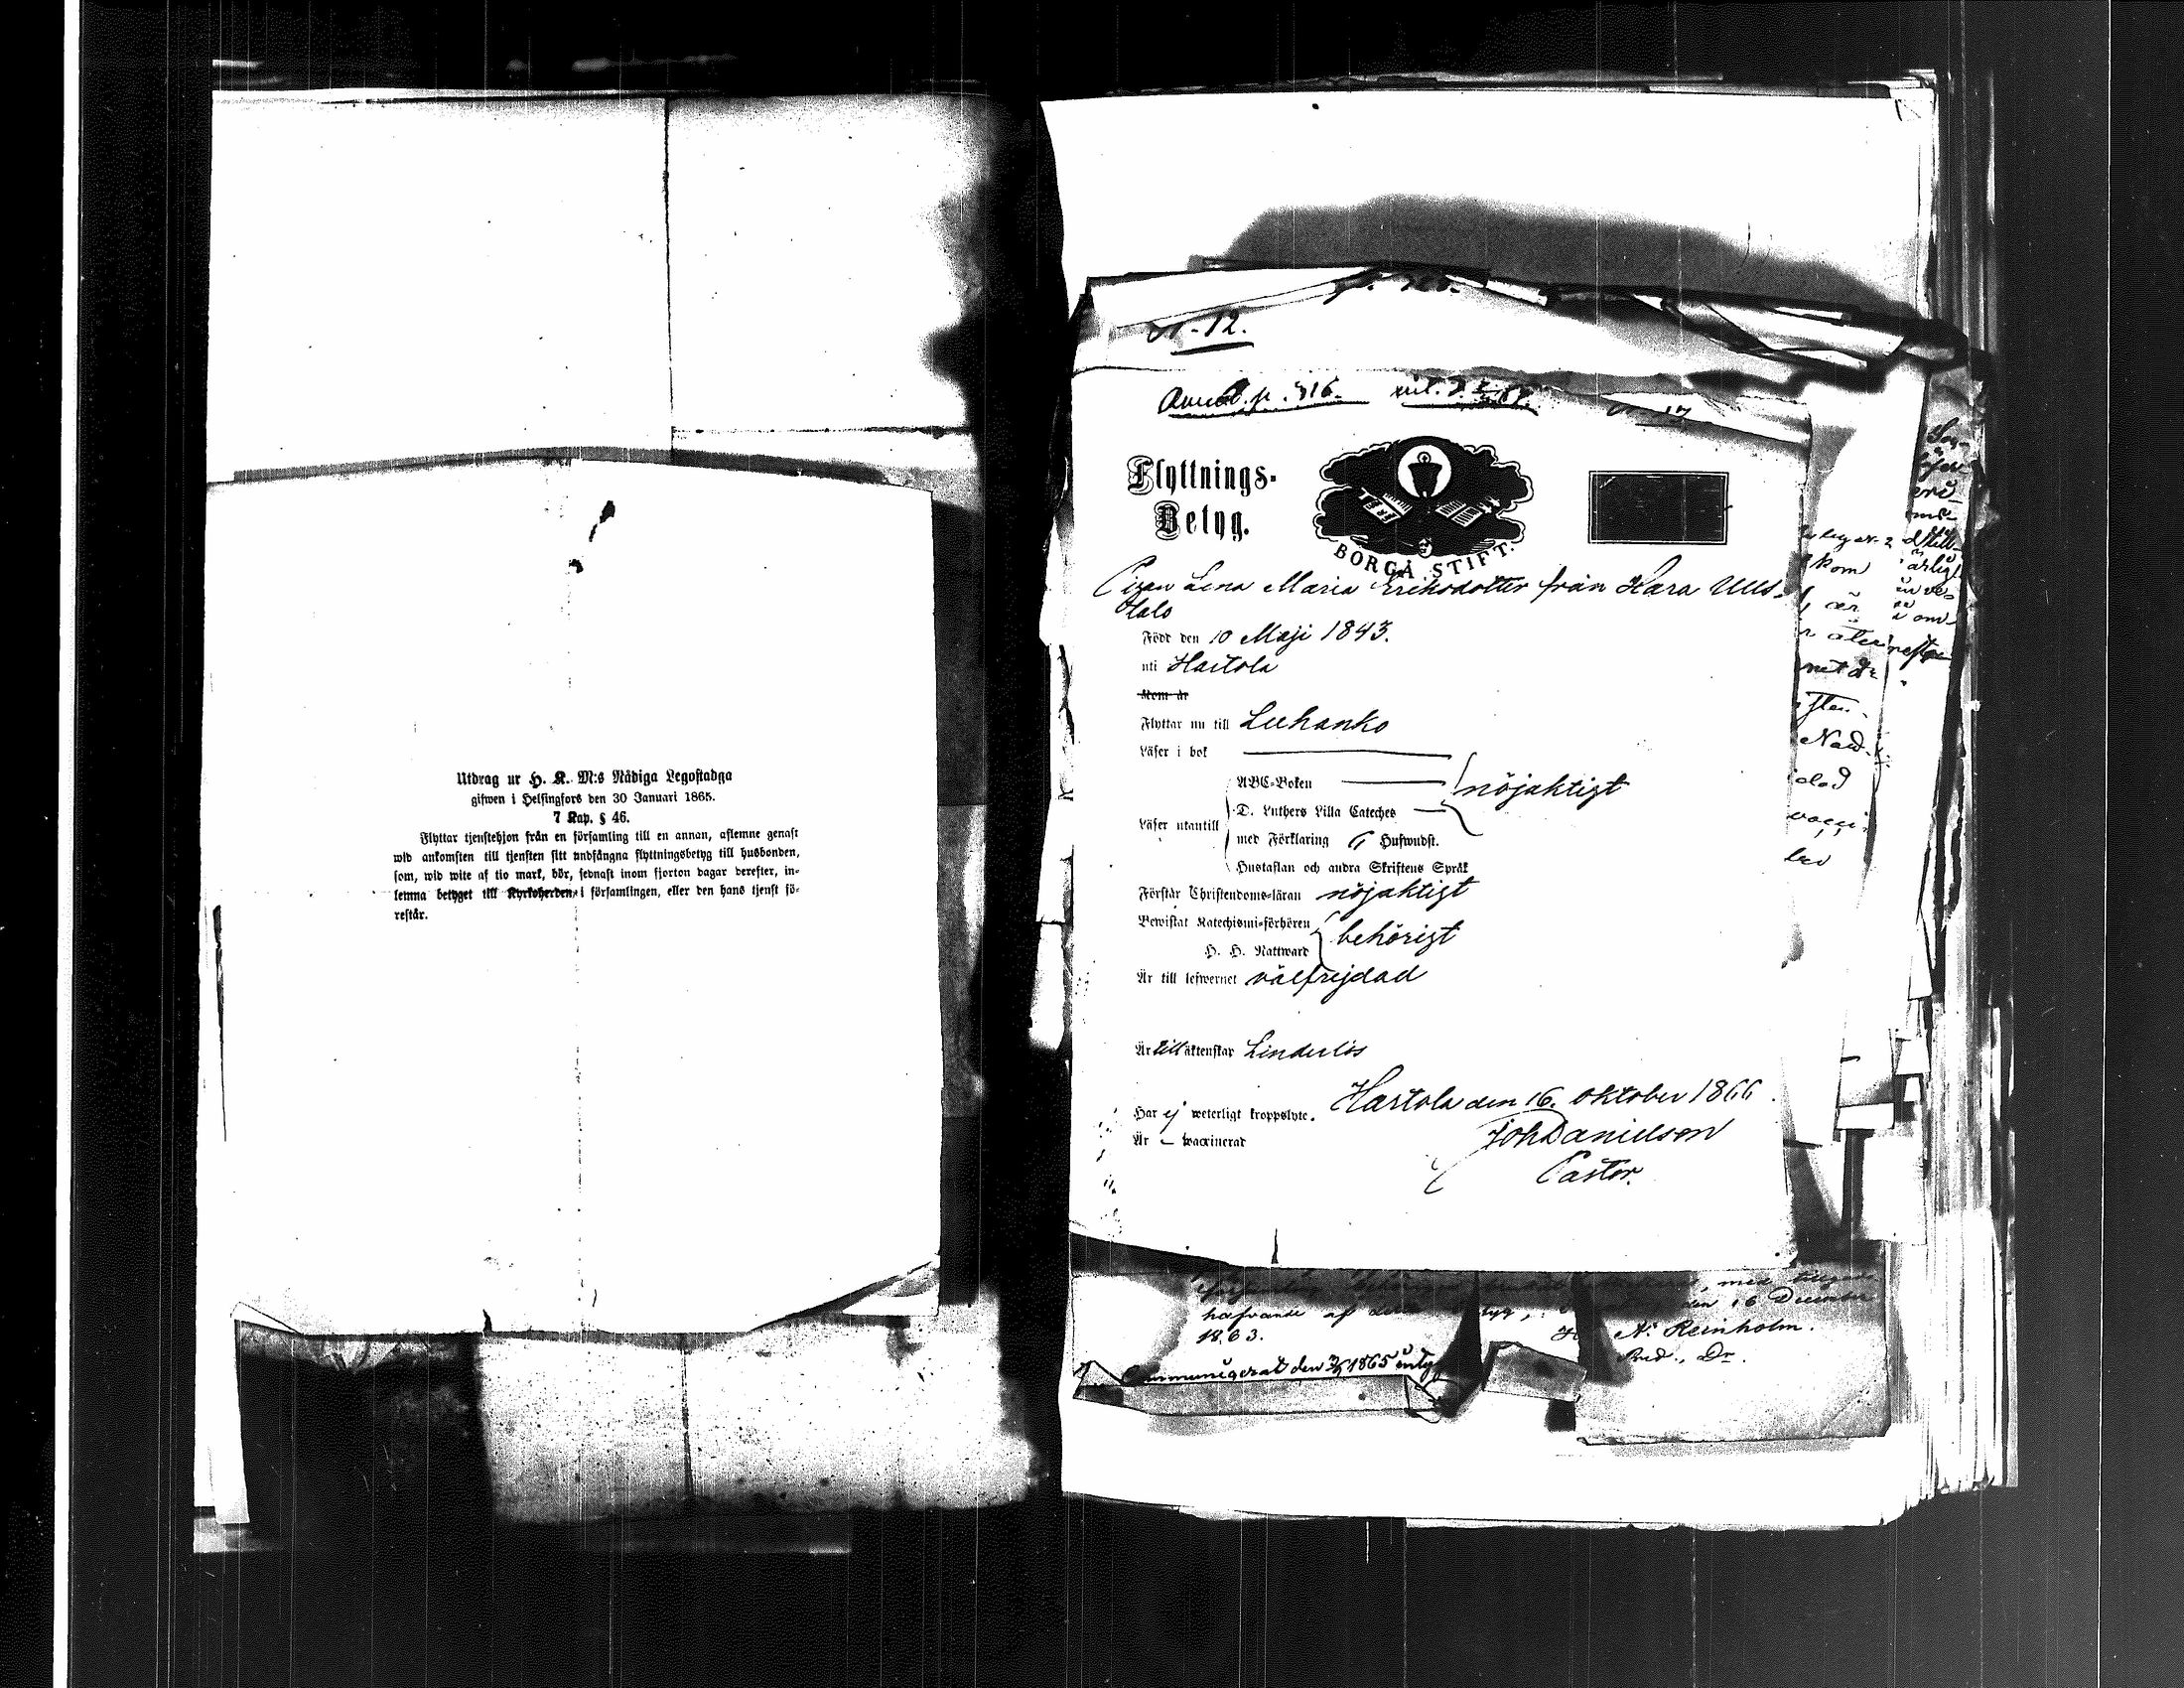 Utdrag ur H. K. M:s Nådiga Legostadga
gifwen i Helsingfors den 30 Januari 1865.
7 Kap. § 46.
Flyttar tjenstehjon från en församling till en annan, aflemne genast
wid ankomsten till tjensten sitt undfångna flyttningsbetyg till husbonden,
som, wid wite af tio mark, bör, sednast inom fjorton dagar derefter, in-
lemna betyget till Kyrkoherden i församlingen, eller den hans tjenst fö-
restår.
N-12.
p. 316.
Flyttnings-
Betyg.
BORGÅ STIFT.
Pigan Lena Maria Eriksdotter från Hara Uus-
talo
Född den 10 Maji 1843.
uti Hartola
Kom år
Flyttar nu till Luhanko
Läser i bok
ABC-Boken
nöjaktigt
D. Luthers Lilla Cateches
Läser utantill
med Förklaring 6 Hufwudst.
Hustaflan och andra Skriftens Språk
Förstår Christendoms-läran nöjaktigt
Bewistat Katechismi-förhören
behörigt
H. H. Nattward
Är till lefwernet välfrejdad
Är till äktenskap hinderlös
Hartola den 16. Oktober 1866
Har ej weterligt kroppslyte.
Är – waccinerad
Joh Danielson
Pastor.
hafvande af
den 16 December
1863.
N: Reinholm.
Communicerat den 1865